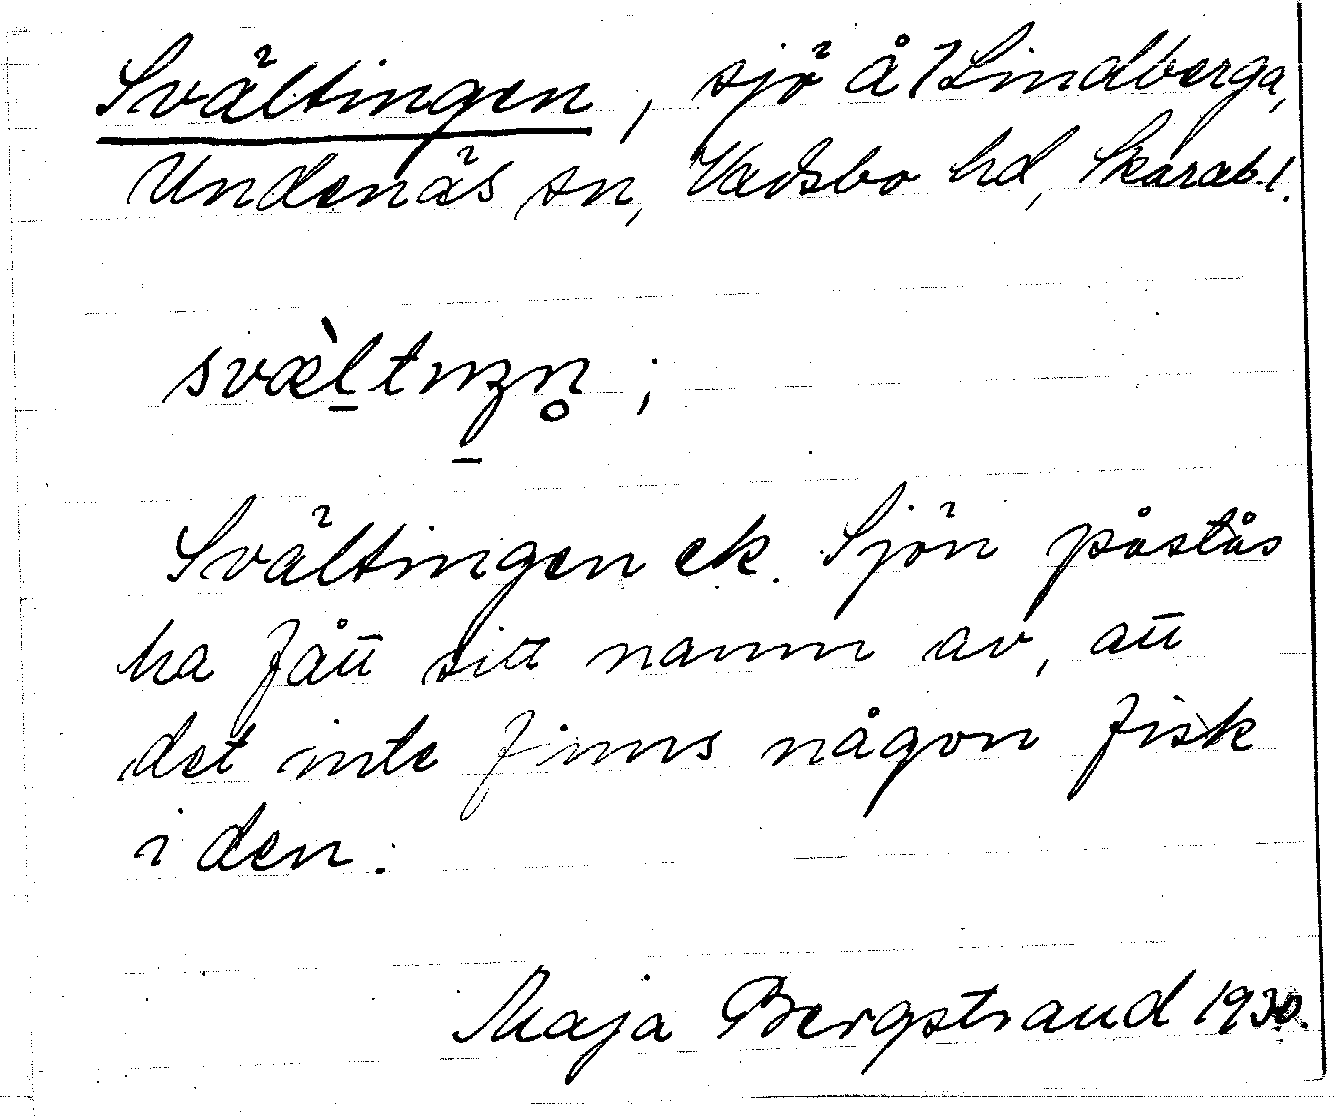 Svältingen, sjö å 7 Lindberga,
Undenäs sn, Vadsbo hd, Skarab.l.
svæ̀l̠tıŋ̠n̥;
Svältingen ek. Sjön påstås
ha fått sitt namn av, att
det inte finns någon fisk
i den.
Maja Bergstrand 1930.